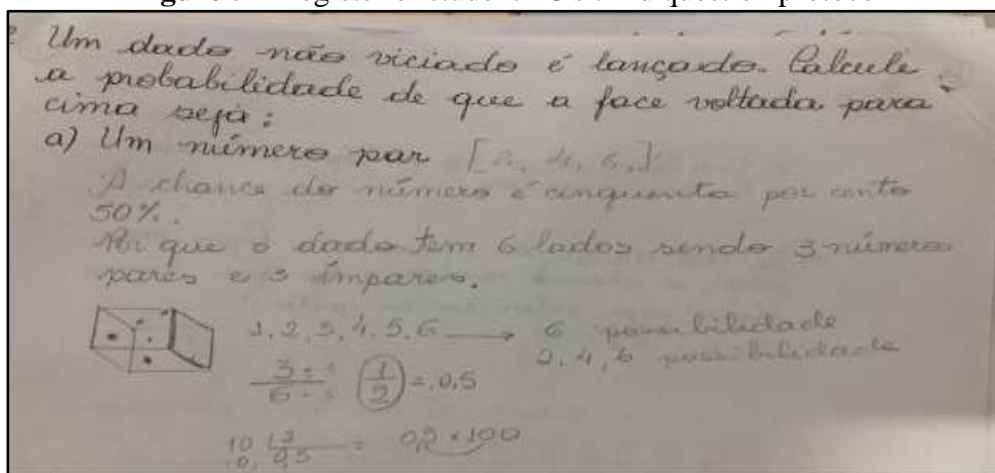 Um dado não viciado é lançado. Calcule
a probabilidade de que a face voltada para
cima seja:
a) Um número par [2, 4, 6,]
A chance do número é cinquenta por cento
50%.
Por que o dado tem 6 lados sendo 3 números
pares e 3 ímpares.
1, 2, 3, 4, 5, 6 → 6 possibilidade
2, 4, 6 possibilidade
3 ÷ 3
6 ÷ 3
(1/2) = 0,5
10 | 2
0, 0,5 = 0,5 × 100